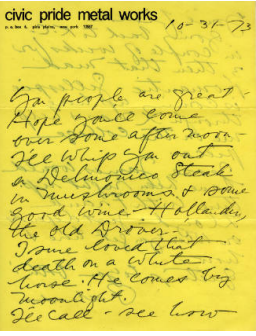 civic pride metal works
10-31-73
You people are great -
Hope you'll come
over some afternoon -
see whip you out
a Delmonico Steak
in mushrooms & some
good wine - Hollandir,
the old Drover -
I sure loved that
death on a white
horse. He comes by
moonlight.
See call - see how